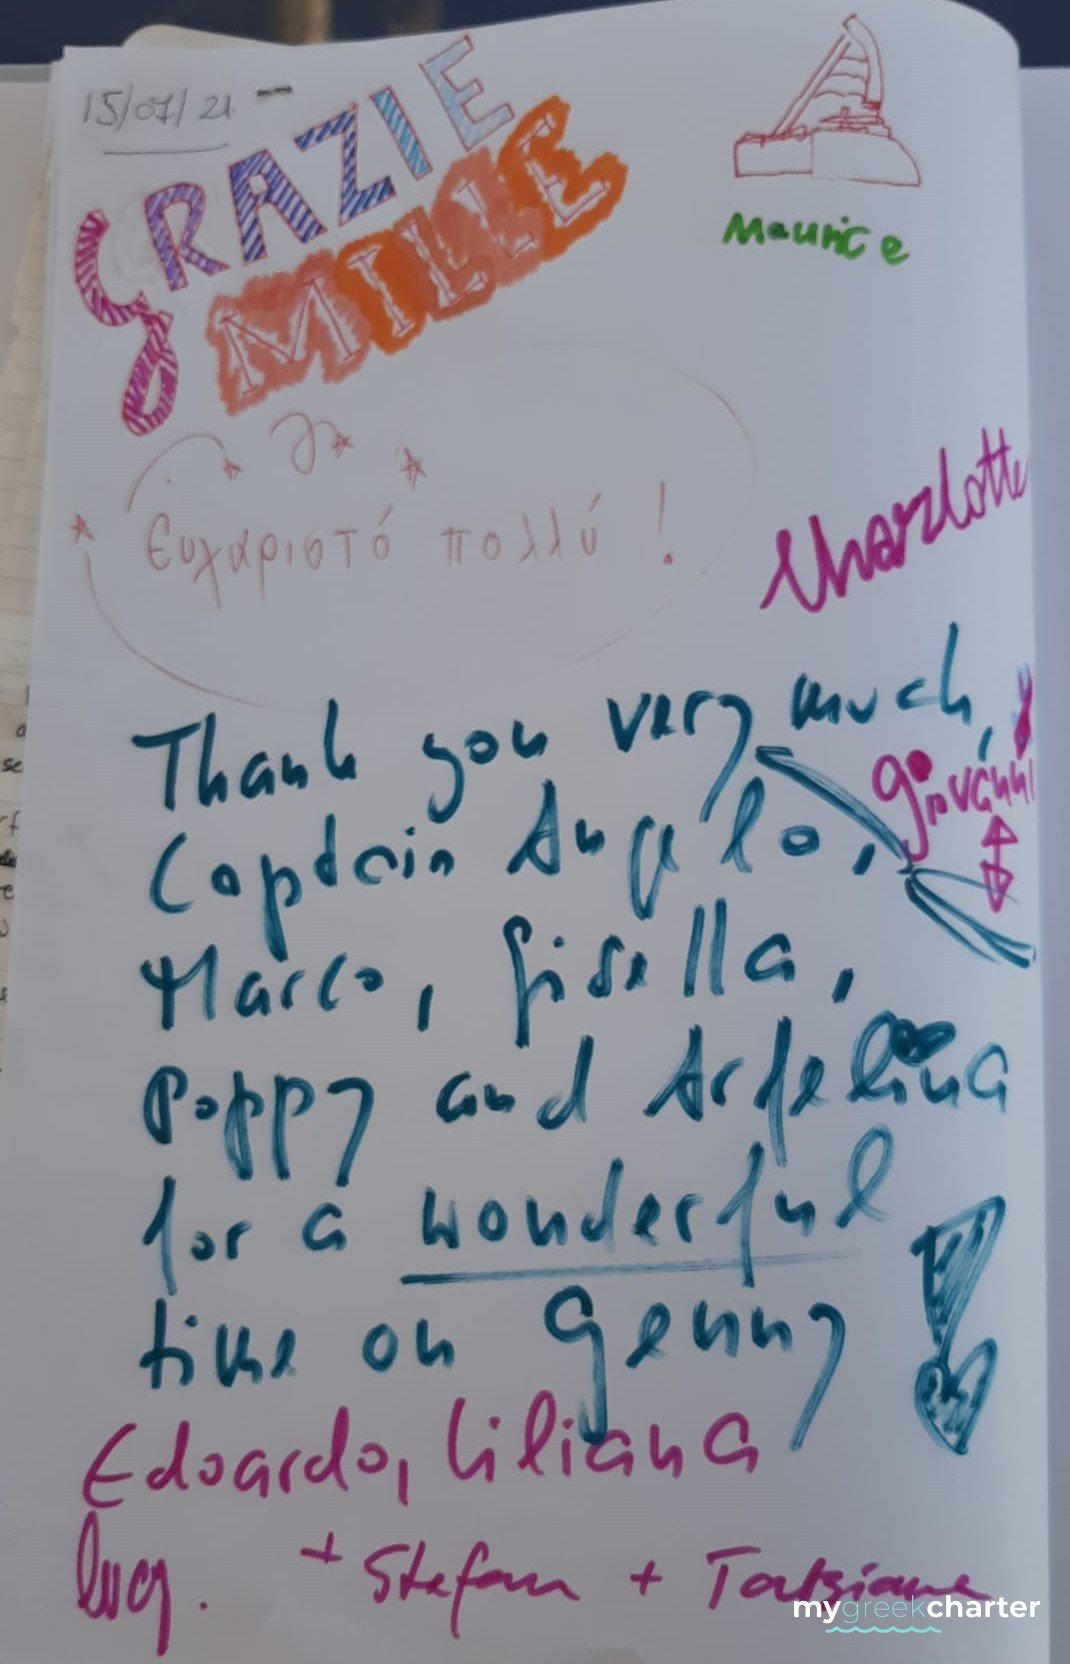 15/07/21
GRAZIE
MILLE
Maurice
Ευχαριστό πολλύ!
Charlotte
Thank you very much,
Giovanni
Captain Angelo,
Marco, Gisella,
Poppy and Arfelina
for a wonderful
time on Genny
Edoardo, Liliana
+ Stefan + Tatsiana
mygreekcharter